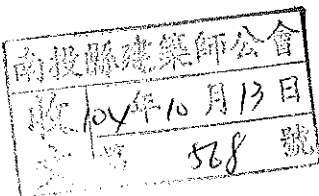 南投縣建築師公會
收文
104年10月13日
號 568 號